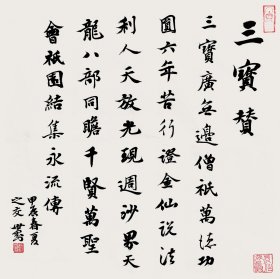 三寶贊
三寶廣無邊僧祇萬德功
圓六年苦行證金仙説法
利人天放光現週沙界天
龍八部同瞻千賢萬聖
會祇園結集永流傳
甲辰春夏
之交